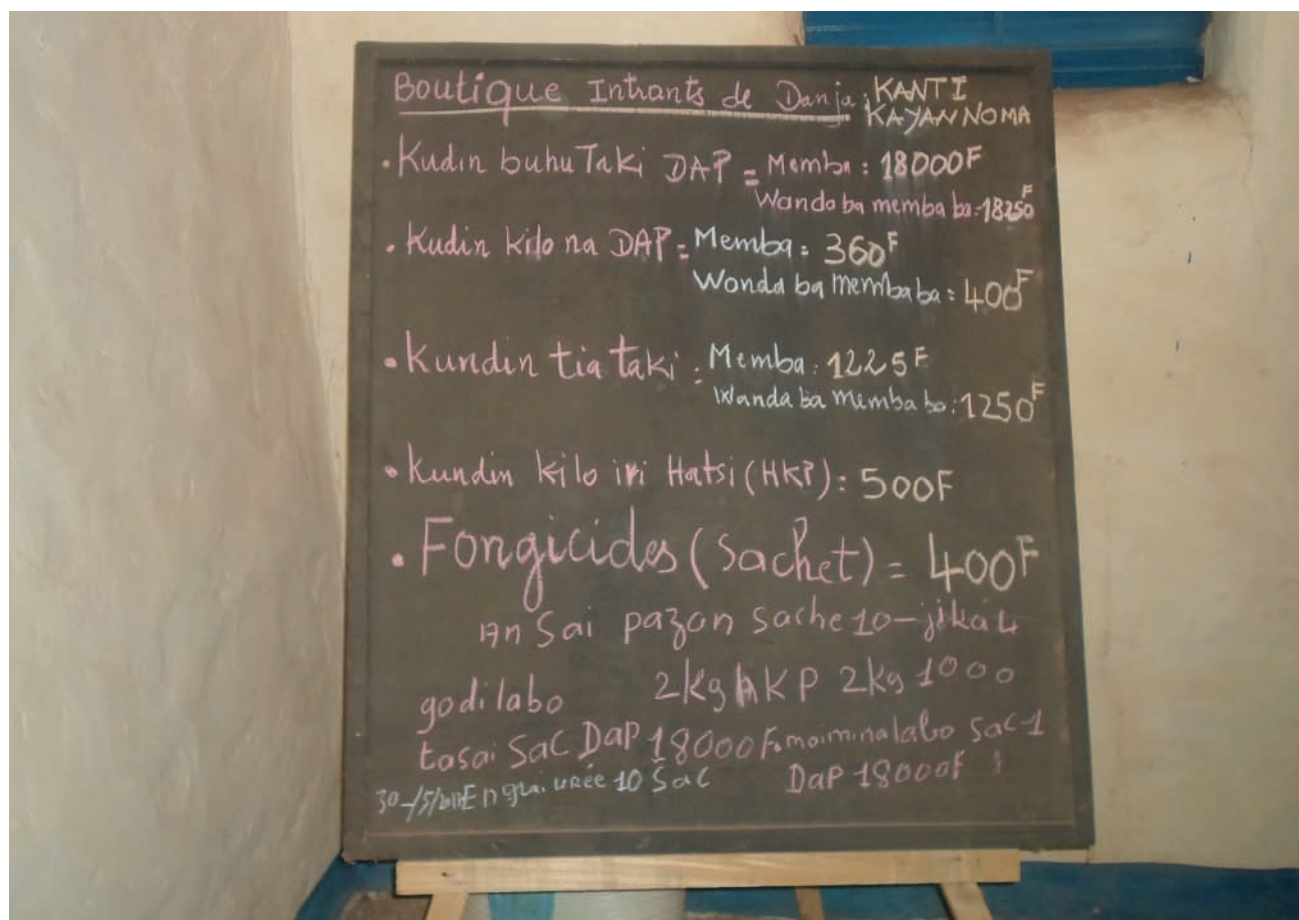 Boutique Intrants de Danja: KANTI
KAYAN NOMA
• Kudin buhu Taki DAP = Memba: 18000F
Wanda ba memba ba: 18250F
• Kudin kilo na DAP = Memba = 360F
Wonda ba memba ba = 400F
• Kundin tia taki: Memba: 1225F
Wanda ba memba ba: 1250F
• Kundin kilo iri Hatsi (HKP): 500F
• Fongicides (sachet) = 400F
An Sai pazan sache 10-jika 4
godilabo 2kg HKP 2kg 1000
tasai Sac DaP 18000F. maiminalabo sac 1
DaP 18000F
30-/5/ Engrai urée 10 Sac